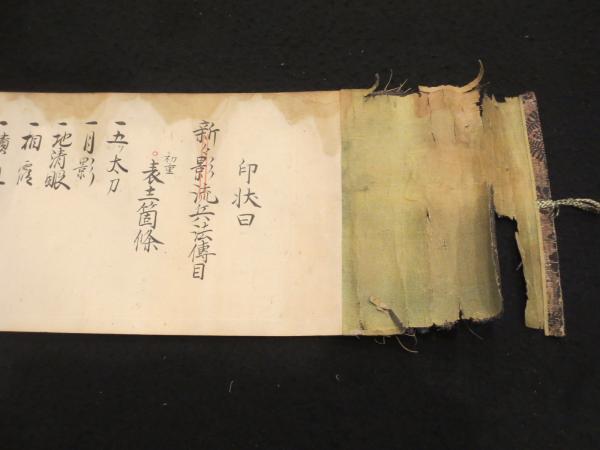 印状曰
新々影流兵法傳目
初重
表十一箇條
一 五ツ太刀
一 月影
一 地清眼
一 相